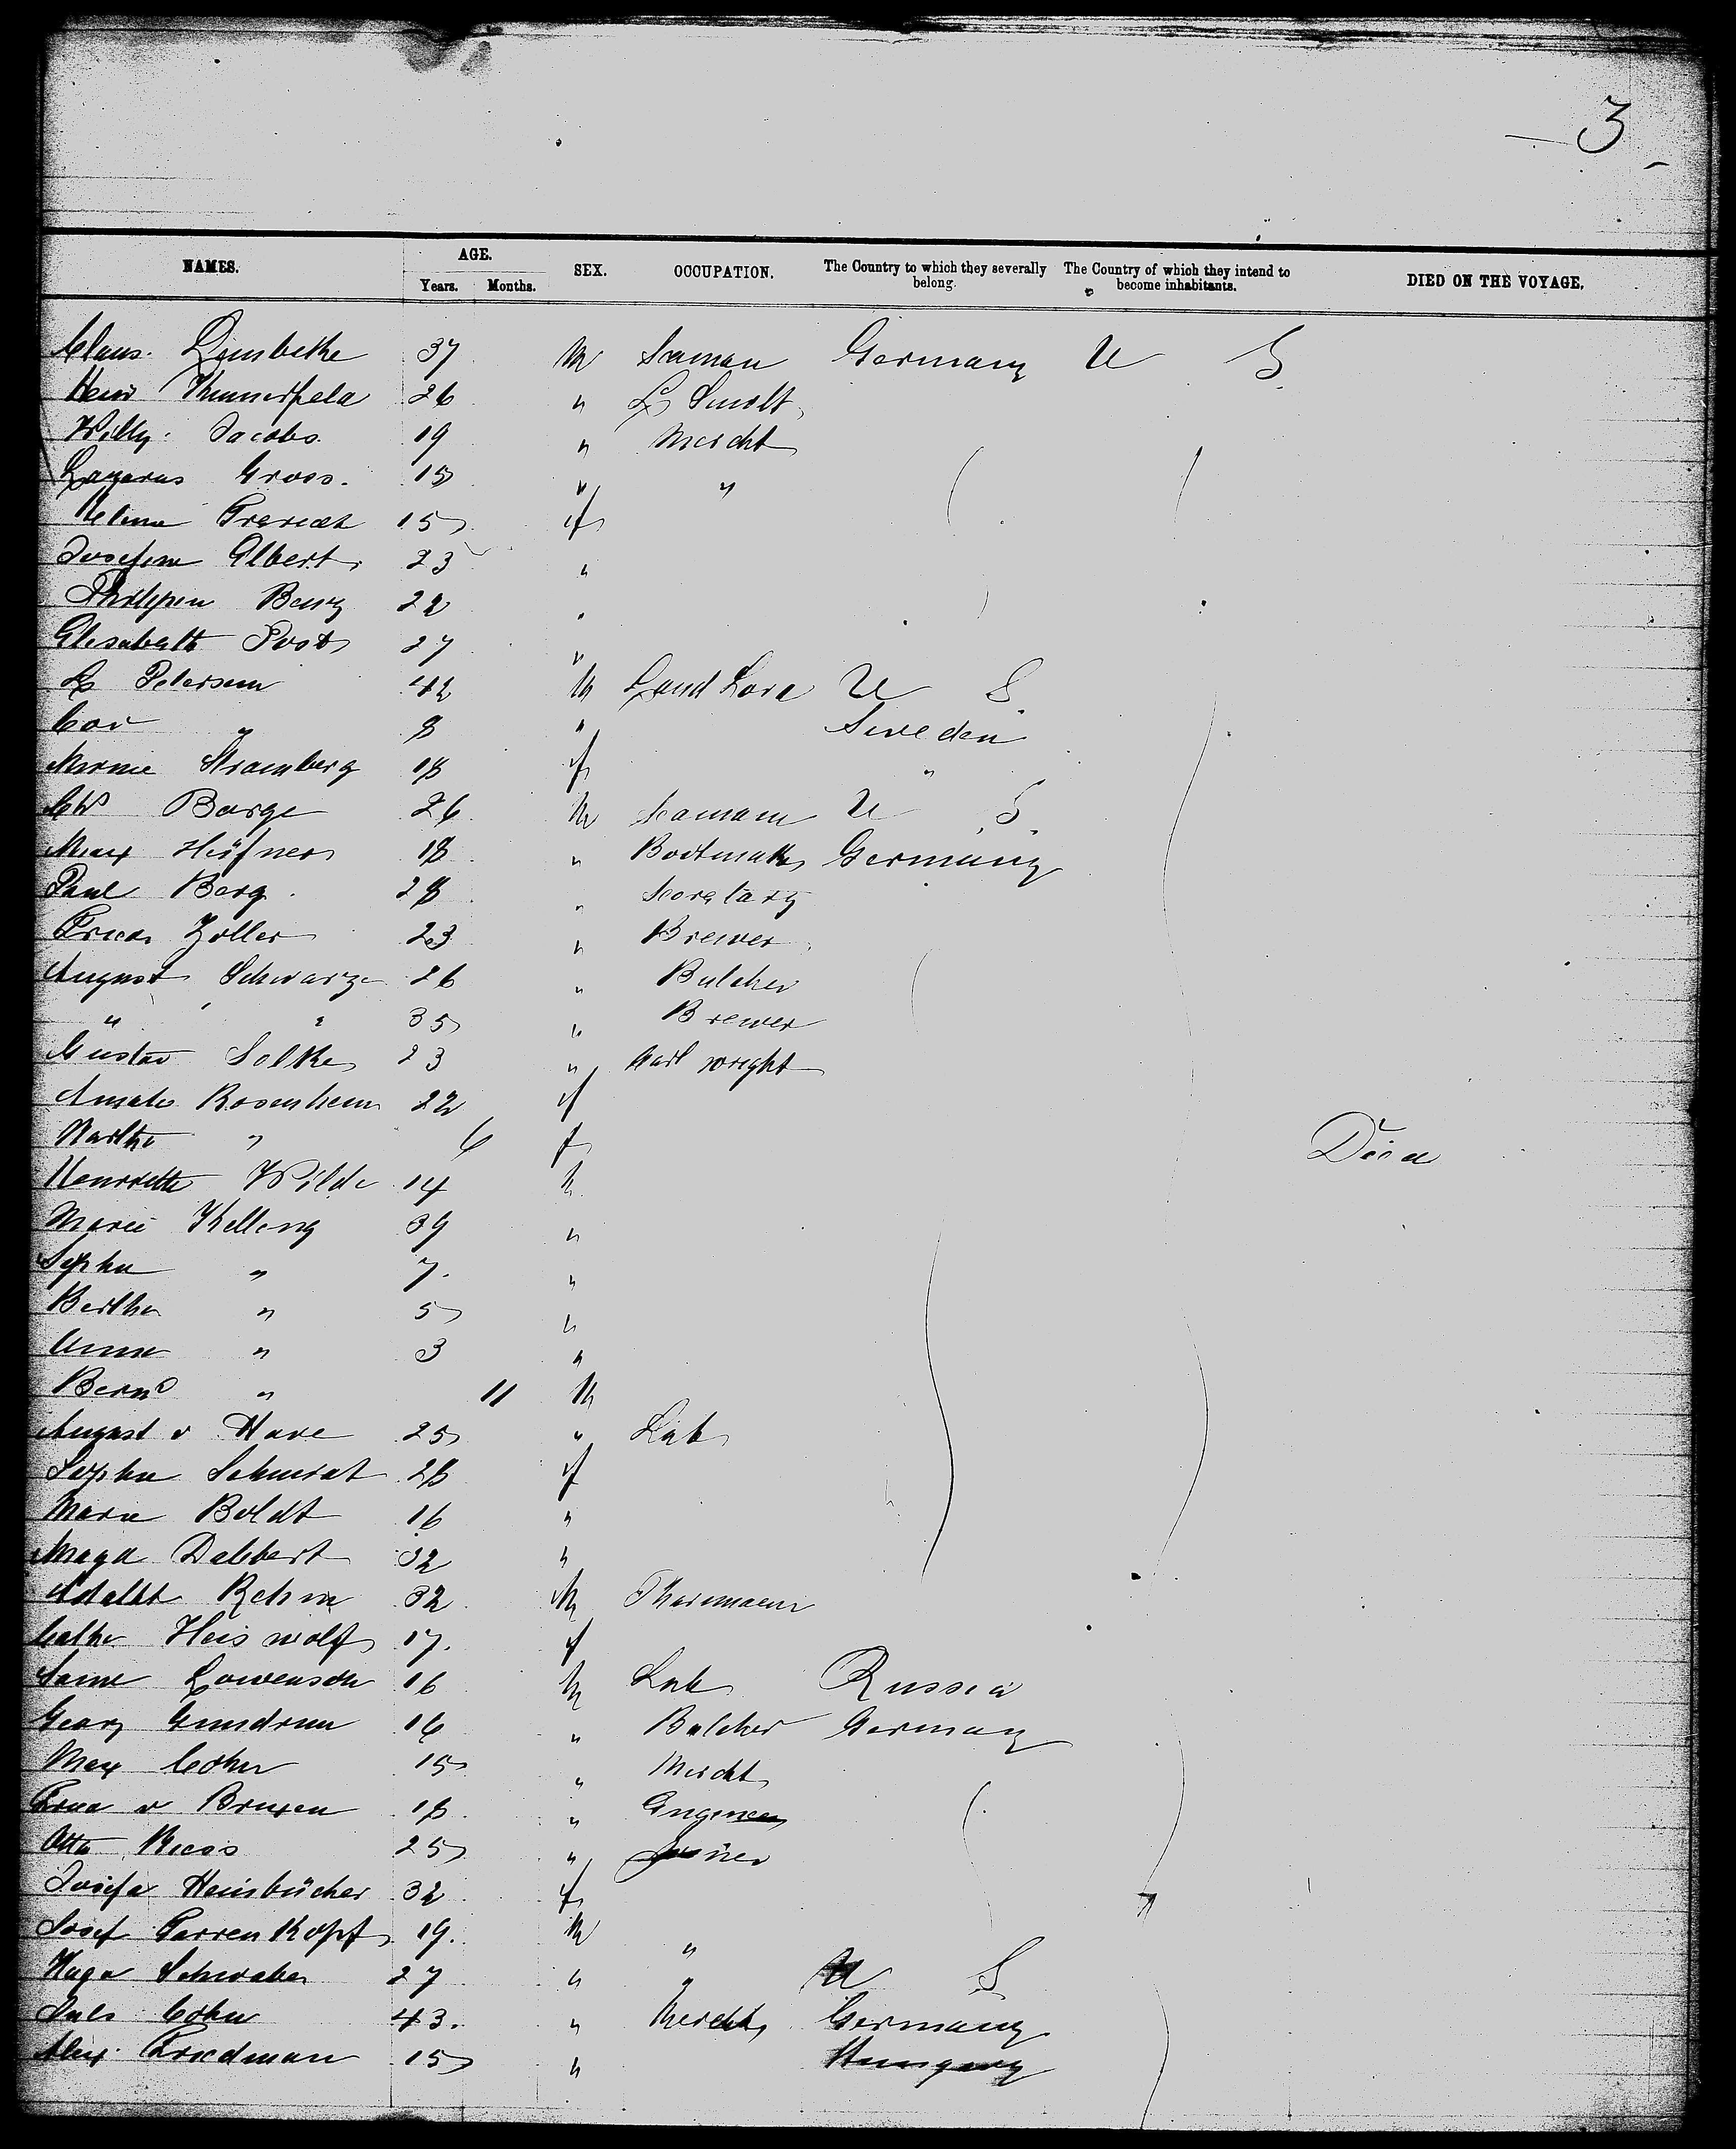 3
NAMES. AGE. SEX. OCCUPATION. The Country to which they severally belong. The Country of which they intend to become inhabitants. DIED ON THE VOYAGE.
Years. Months.
Claus. 37 M Seaman Germany U S.
Heinr 26 "
Willy. Jacobs. 19 " Mercht
Lazarus Gross. 15 " "
15 f
Josefine Albert 23 "
Berg 22 "
Elisabeth Post 27 "
Petersen 42 M Land Lord U S.
" 8 " Sweden
Minnie Stromberg 18 f "
Chs Barge 26 M Seaman U S.
Max Höfner 18 " Bootmaker Germany
Paul Berg. 28 " Secretary
Zoller 23 " Brewer
August Schwarze 26 " Butcher
" " 35 " Brewer
Gustav 23 " Cart wright
Rosenheim 22 f
Martha " 6 f Died
Henriette Wilde 14
Marie Kelling 39 "
Sophie " 7. "
Bertha " 5 "
Anna " 3 "
Bernd " 11 M
August v Have 25 " Lab
Sophie Schmidt 28 f
Marie Boldt 16 "
Magd Dabbert 32 "
Adalbt Rehm 32 M
Cath Heiswolf 17. f
Lowensohn 16 M Lab Russia
Georg Gundrum 16 " Butcher Germany
Max Cohn 15 " Mercht
v Bruxen 18. " Engineer
Otto Riess 25 "
Josefa Heinbücher 32 f
Josef Farrenkopf 19. M "
Hugo Schwabe 27 " " U S.
Juls Cohn 43. " Mercht Germany
Alex. Friedman 15 " Hungary